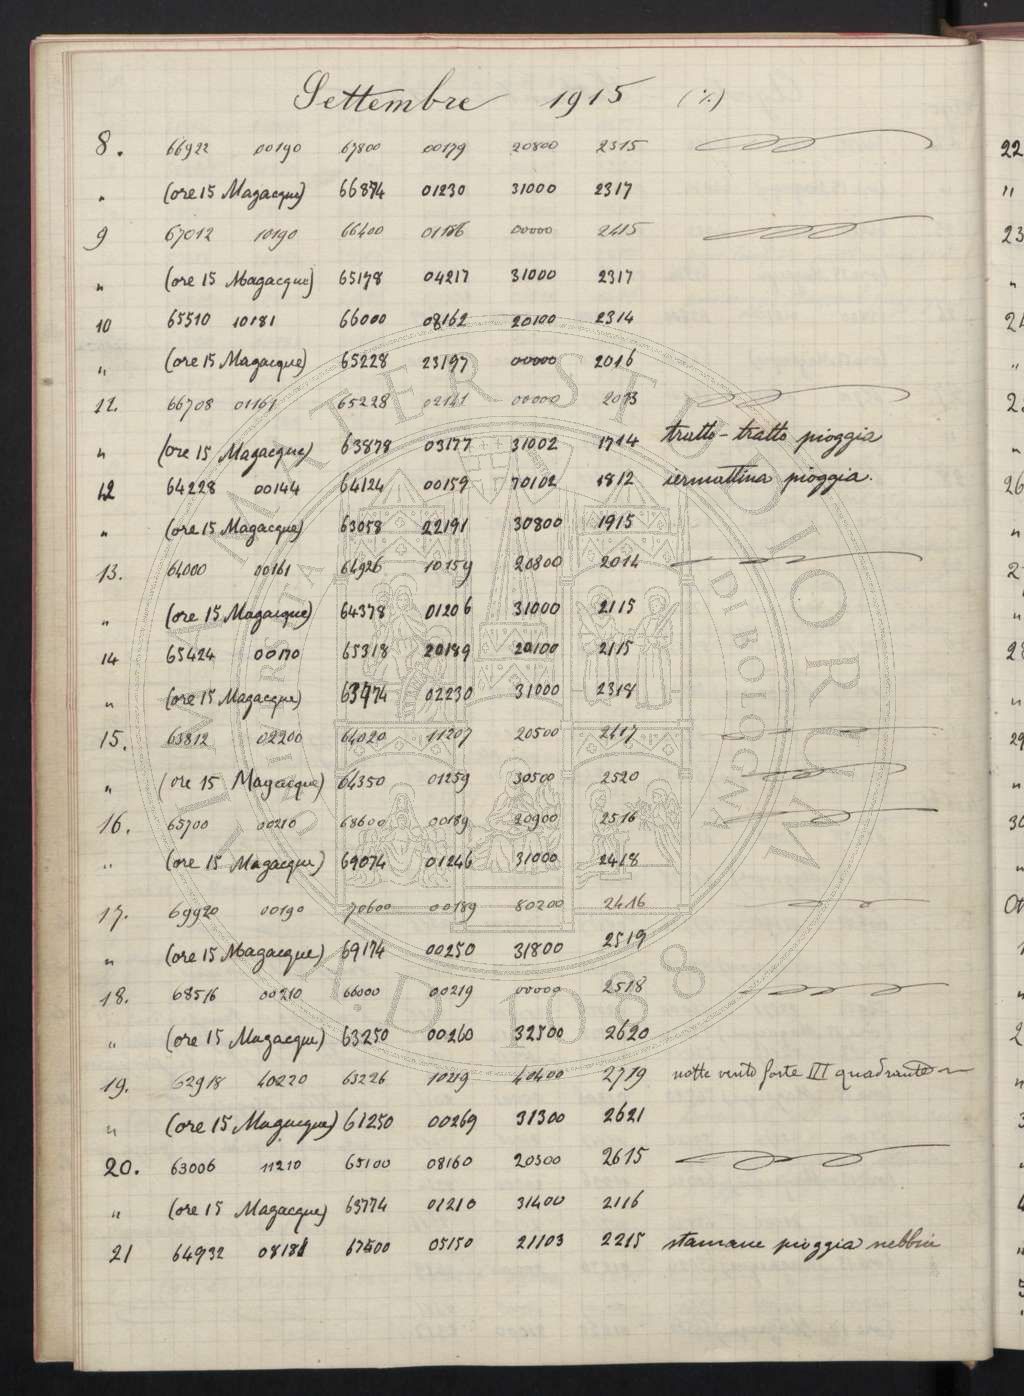 Settembre 1915 (%)
8. 66922 00190 67800 00179 20800 2315
" (ore 15 Magacque) 66874 01230 31000 2317
9 67012 10190 66400 01186 00000 2415
" (ore 15 Magacque) 65178 04217 31000 2317
10 65510 10181 66000 08162 20100 2314
" (ore 15 Magacque) 65228 23197 00000 2016
11. 66708 01161 65228 02141 00000 2013
" (ore 15 Magacque) 63878 03177 31002 1714 tratto-tratto pioggia
12 64228 00144 64124 00159 70102 1812 iermattina pioggia.
" (ore 15 Magacque) 63058 22191 30800 1915
13. 64000 00161 64926 10159 20800 2014
" (ore 15 Magacque) 64378 01206 31000 2115
14 65424 00170 65318 20189 20100 2115
" (ore 15 Magacque) 63474 02230 31000 2318
15. 63812 02200 64020 11207 20500 2417
" (ore 15 Magacque) 64350 01259 30500 2520
16. 65700 00210 68600 00189 20900 2516
" (ore 15 Magacque) 69074 01246 31000 2418
17. 69920 00190 70600 00189 80200 2416
" (ore 15 Magacque) 69174 00250 31800 2519
18. 68516 00210 66000 00219 00000 2518
" (ore 15 Magacque) 63250 00260 32500 2620
19. 62918 40220 63226 10219 40400 2719 notte vento forte III quadrante
" (ore 15 Magacque) 61250 00269 31300 2621
20. 63006 11210 65100 08160 20300 2615
" (ore 15 Magacque) 63774 01210 31400 2116
21 64932 08181 67500 05150 21103 2215 stamane pioggia nebbia
ALMA MATER STUDIORUM
A.D. 1088